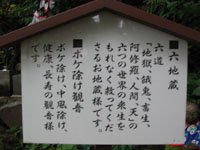 六地蔵
六道
「地獄、餓鬼、畜生、
阿修羅、人間、天」の
六つの世界の衆生を
もれなく救ってくだ
さるお地蔵様です。
ボケ除け観音
ボケ除け、中風除け、
健康、長寿の観音様
です。